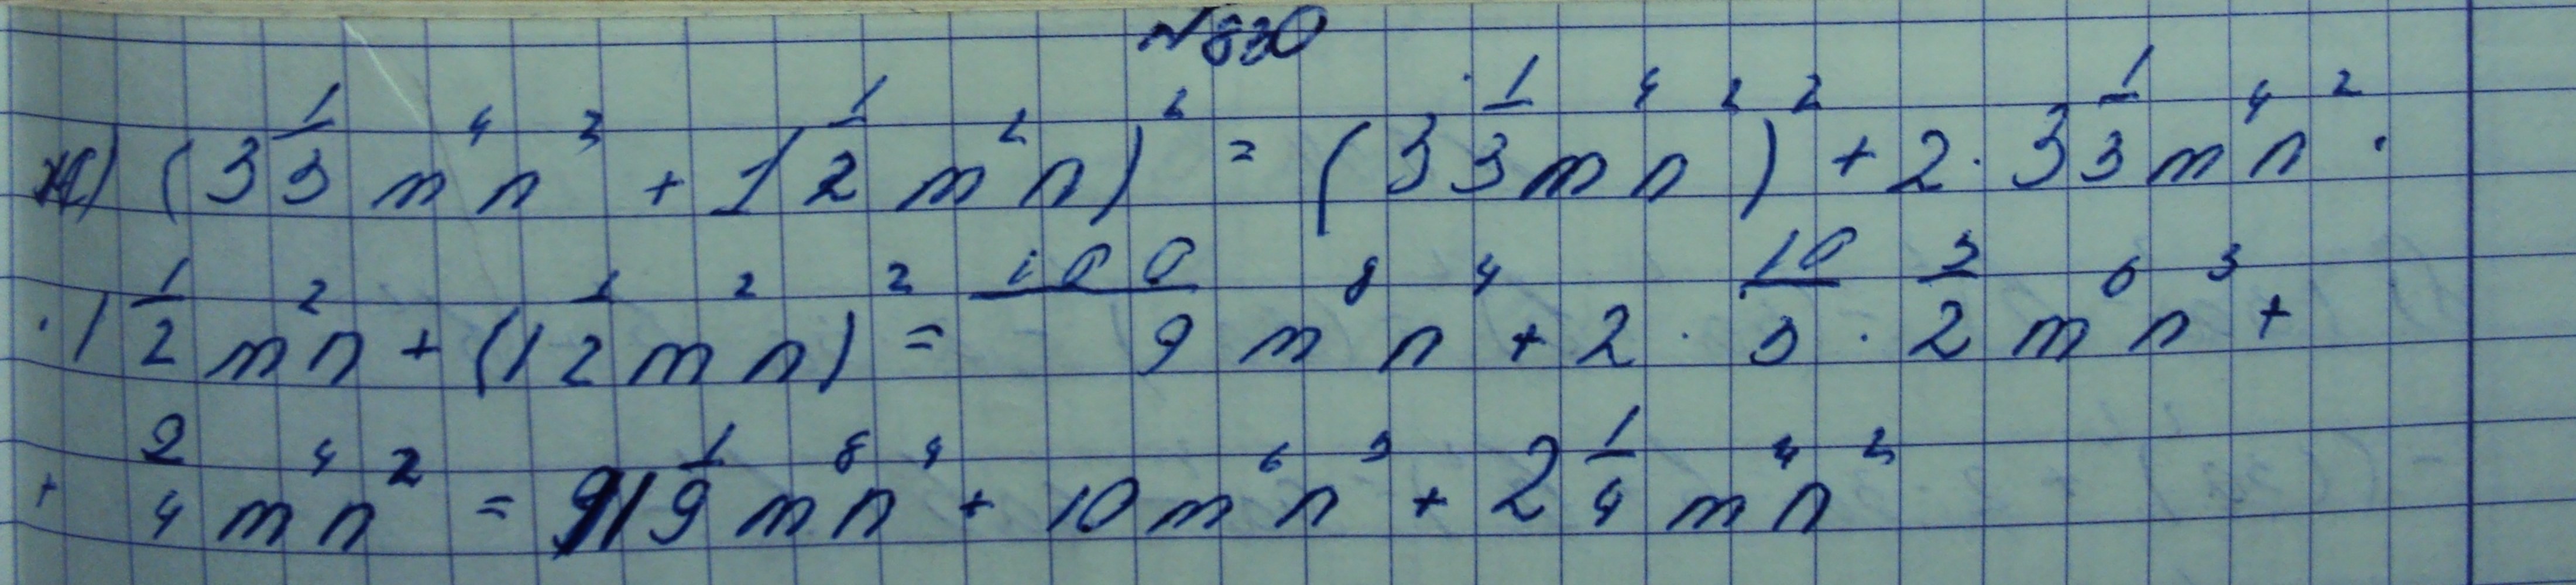 №830
ж) (3 1/3 m⁴n² + 1 1/2 m²n)² = (3 1/3 m⁴n²)² + 2 · 3 1/3 m⁴n² ·
· 1 1/2 m²n + (1 1/2 m²n)² = 100/9 m⁸n⁴ + 2 · 10/3 · 3/2 m⁶n³ +
+ 9/4 m⁴n² = 11 1/9 m⁸n⁴ + 10m⁶n³ + 2 1/4 m⁴n²